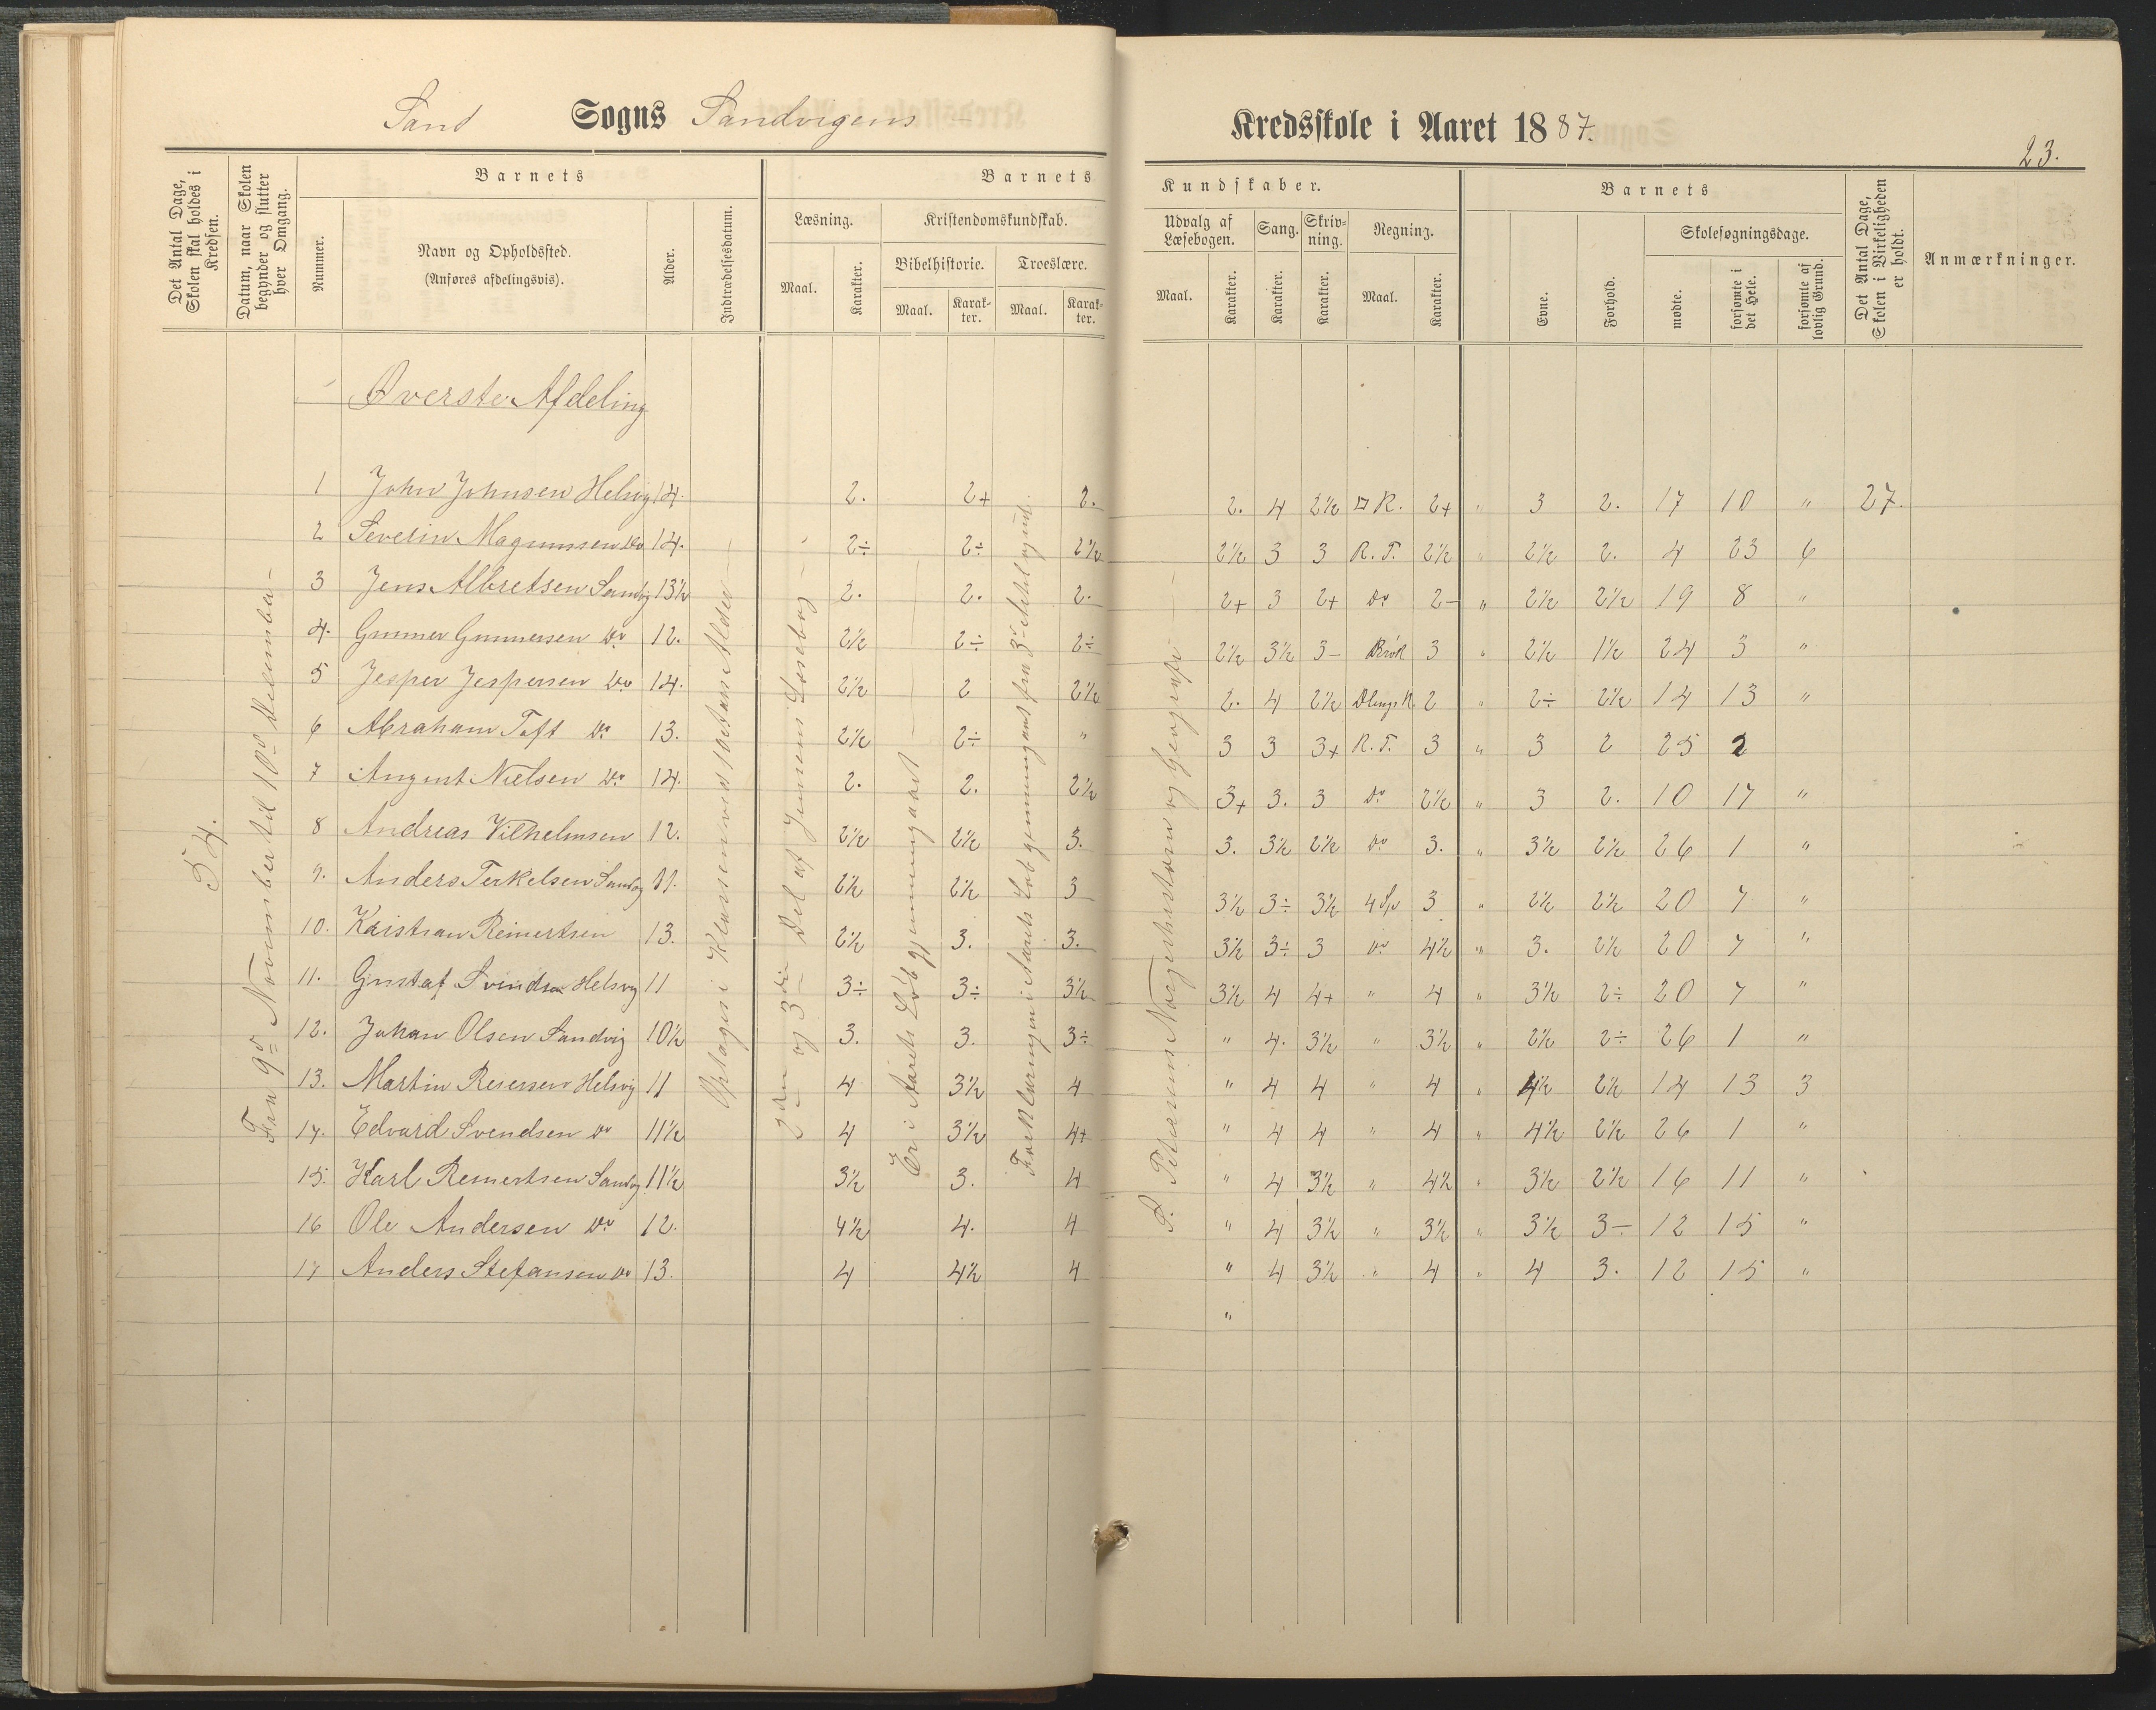 Sand Sogns Sandvigens
Kredsskole i Aaret 1887.
23.
Det Antal Dage, Skolen skal holdes i Kredsen.
Datum, naar Skolen begynder og slutter hver Omgang.
Barnets
Nummer.
Navn og Opholdssted.
(Anføres afdelingsvis).
Alder.
Indtrædelsesdatum.
Barnets
Læsning.
Maal.
Karakter.
Kristendomskundskab.
Bibelhistorie.
Maal.
Karakter.
Troeslære.
Maal.
Karakter.
Kundskaber.
Udvalg af Læsebogen.
Maal.
Karakter.
Sang.
Karakter.
Skrivning.
Karakter.
Regning.
Maal.
Karakter.
Barnets
Evne.
Forhold.
Skolesøgningsdage.
mødte.
forsømte i det Hele.
forsømte af lovlig Grund.
Det Antal Dage, Skolen i Virkeligheden er holdt.
Anmærkninger.
Øverste Afdeling
54.
Fra 9de November til 10de December
Optages i Klassen ved 10de Aars Alder
2den og 3die Del af Jensens Læsebog
Er i Aarets Løb gjennemgaaet
Forklaringen i Aarets Løb gjennemgaaet fra 3die Artikel og ud.
P. Petersens Norgeshistorie og Geografi
1 John Johnsen Helvig 14. 2. 2+ 2. 2. 4 2½ □ R. 2+ " 3 2. 17 10 " 27.
2 Severin Magnussen Do 14. 2÷ 2÷ 2½ 2½ 3 3 R. T. 2½ " 2½ 2. 4 23 6
3 Jens Albretsen Sandvig 13½ 2. 2. 2. 2+ 3 2+ Do 2- " 2½ 2½ 19 8 "
4. Gunner Gunnersen Do 12. 2½ 2÷ 2÷ 2½ 3½ 3- Brøk 3 " 2½ 1½ 24 3 "
5 Jesper Jespersen Do 14. 2½ 2 2½ 2. 4 2½ 2 " 2÷ 2½ 14 13 "
6 Abraham Toft Do 13. 2½ 2÷ " 3 3 3+ R. T. 3 " 3 2 25 2
7 August Nielsen Do 14. 2. 2. 2½ 3+ 3. 3 Do 2½ " 3 2. 10 17 "
8 Andreas Vilhelmsen 12. 2½ 2½ 3. 3. 3½ 2½ Do 3. " 3½ 2½ 26 1 "
9. Anders Terkelsen Sandvig 11. 2½ 2½ 3 3½ 3÷ 3½ 4 Sp 3 " 2½ 2½ 20 7 "
10. Kristian Reinertsen 13. 2½ 3. 3. 3½ 3÷ 3 Do 4½ " 3. 2½ 20 7 "
11. Gustaf Svendsen Helsvig 11 3÷ 3÷ 3½ 3½ 4 4+ " 4 " 3½ 2÷ 20 7 "
12. Johan Olsen Sandvig 10½ 3. 3. 3÷ " 4. 3½ " 3½ " 2½ 2÷ 26 1 "
13. Martin Reiersen Helsvig 11 4 3½ 4 " 4 4 " 4 " 4½ 2½ 14 13 3
14. Edvard Svendsen Do 11½ 4 3½ 4+ " 4 4 " 4 " 4½ 2½ 26 1 "
15. Karl Reinertsen Sandvig 11½ 3½ 3. 4 " 4 3½ " 4½ " 3½ 2½ 16 11 "
16 Ole Andersen Do 12. 4½ 4. 4 " 4 3½ " 3½ " 3½ 3- 12 15 "
17 Anders Stefansen Do 13. 4 4½ 4 " 4 3½ " 4 " 4 3. 12 15 "
"